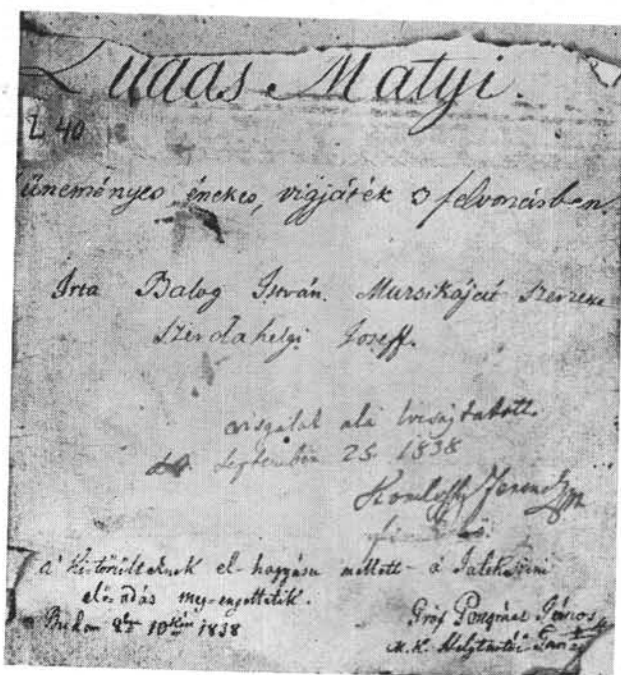 Ludas Matyi.
L 40
tüneményes, énekes, vigjáték 3 felvonásban.
Irta Balog István. Mursikáját Szerzette
Szerdahelyi Joseff.
visgálat alá
September 25. 1838
Komlossy Ferencz
A' Ki-törölteknek el-hagyása mellett a' Játékszini
elő-adás meg-engedtetik.
Budan 10 1838
Gróf Pongrácz János
M. K. Helytartói